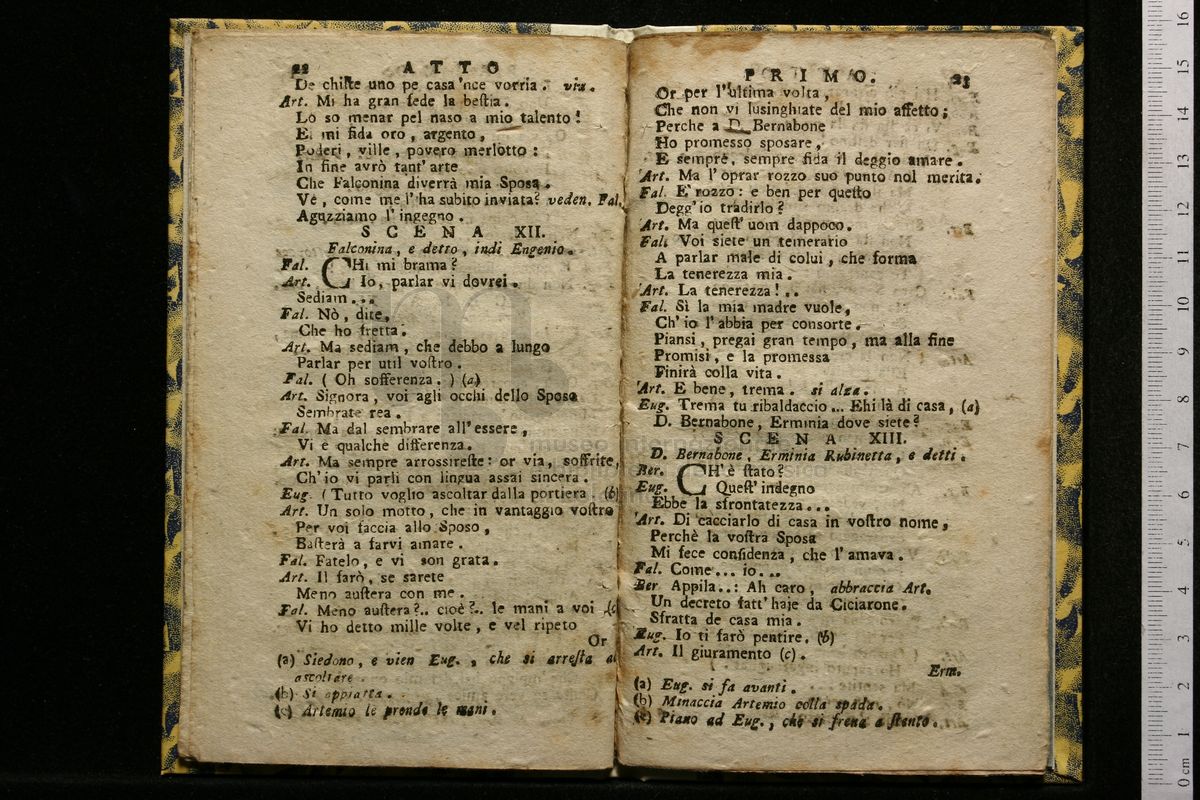 22 ATTO
De chiste uno pe casa 'nce vorria. via.
Art. Mi ha gran fede la bestia.
Lo so menar pel naso a mio talento!
Ei mi fida oro, argento,
Poderi, ville, povero merlotto:
In fine avrò tant' arte
Che Falconina diverrà mia Sposa.
Ve, come me l' ha subito inviata? veden. Fal.
Aguzziamo l' ingegno.
SCENA XII.
Falconina, e detto, indi Engenio.
Fal. CHi mi brama?
Art. Io, parlar vi dovrei.
Sediam...
Fal. Nò, dite,
Che ho fretta.
Art. Ma sediam, che debbo a lungo
Parlar per util vostro.
Fal. (Oh sofferenza.) (a)
Art. Signora, voi agli occhi dello Sposo
Sembrate rea.
Fal. Ma dal sembrare all' essere,
Vi è qualche differenza.
Art. Ma sempre arrossireste: or via, soffrite,
Ch' io vi parli con lingua assai sincera.
Eug (Tutto voglio ascoltar dalla portiera (b)
Art. Un solo motto, che in vantaggio vostro
Per voi faccia allo Sposo,
Basterà a farvi amare.
Fal. Fatelo, e vi son grata.
Art. Il farò, se sarete
Meno austera con me.
Fal. Meno austera?.. cioè?.. le mani a voi (c
Vi ho detto mille volte, e vel ripeto
Or
(a) Siedono, e vien Eug., che si arresta ad
ascoltare.
(b) Si appiatta.
(c) Artemio le prende le mani.
PRIMO. 23
Or per l'ultima volta,
Che non vi lusinghiate del mio affetto;
Perche a D. Bernabone
Ho promesso sposare,
E sempre, sempre fida il deggio amare.
Art. Ma l' oprar rozzo suo punto nol merita.
Fal. E' rozzo: e ben per questo
Degg' io tradirlo?
Art. Ma quest' uom dappoco.
Fal. Voi siete un temerario
A parlar male di colui, che forma
La tenerezza mia.
Art. La tenerezza!..
Fal. Sì la mia madre vuole,
Ch' io l' abbia per consorte.
Piansi, pregai gran tempo, ma alla fine
Promisi, e la promessa
Finirà colla vita.
Art. E bene, trema. si alza.
Eug. Trema tu ribaldaccio... Ehi là di casa, (a)
D. Bernabone, Erminia dove siete?
SCENA XIII.
D. Bernabone, Erminia Rubinetta, e detti.
Ber. CH' è stato?
Eug. Quest' indegno
Ebbe la sfrontatezza...
Art. Di cacciarlo di casa in vostro nome,
Perchè la vostra Sposa
Mi fece confidenza, che l' amava.
Fal. Come... io...
Ber Appila..: Ah caro, abbraccia Art.
Un decreto fatt' haje da Ciciarone.
Sfratta de casa mia.
Eug. Io ti farò pentire. (b)
Art. Il giuramento (c).
Erm.
(a) Eug. si fa avanti.
(b) Minaccia Artemio colla spada.
(c) Piano ad Eug., che si frena a stento.